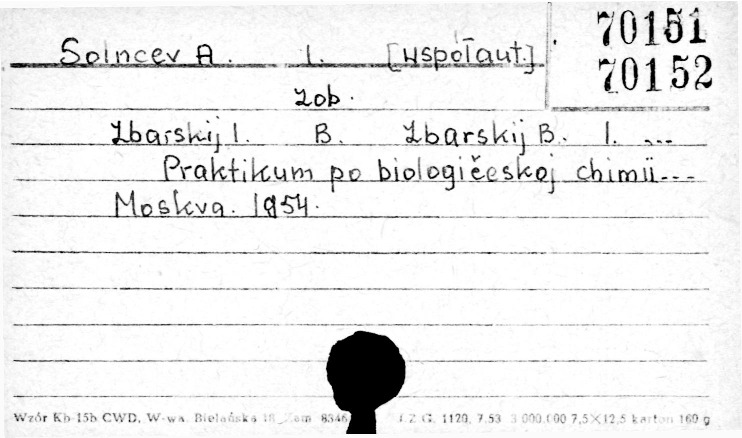 Solncev A. I. [współaut.]
70151
70152
zob.
Zbarskij I. B. Zbarskij B. I. ...
Praktikum po biologičeskoj chimii...
Moskva. 1954.
Wzór Kb-15b CWD, W-wa. Bielańska 18 Zam 8346 Z G. 1120, 7.53 3 000.000 7,5×12,5 karton 160 g